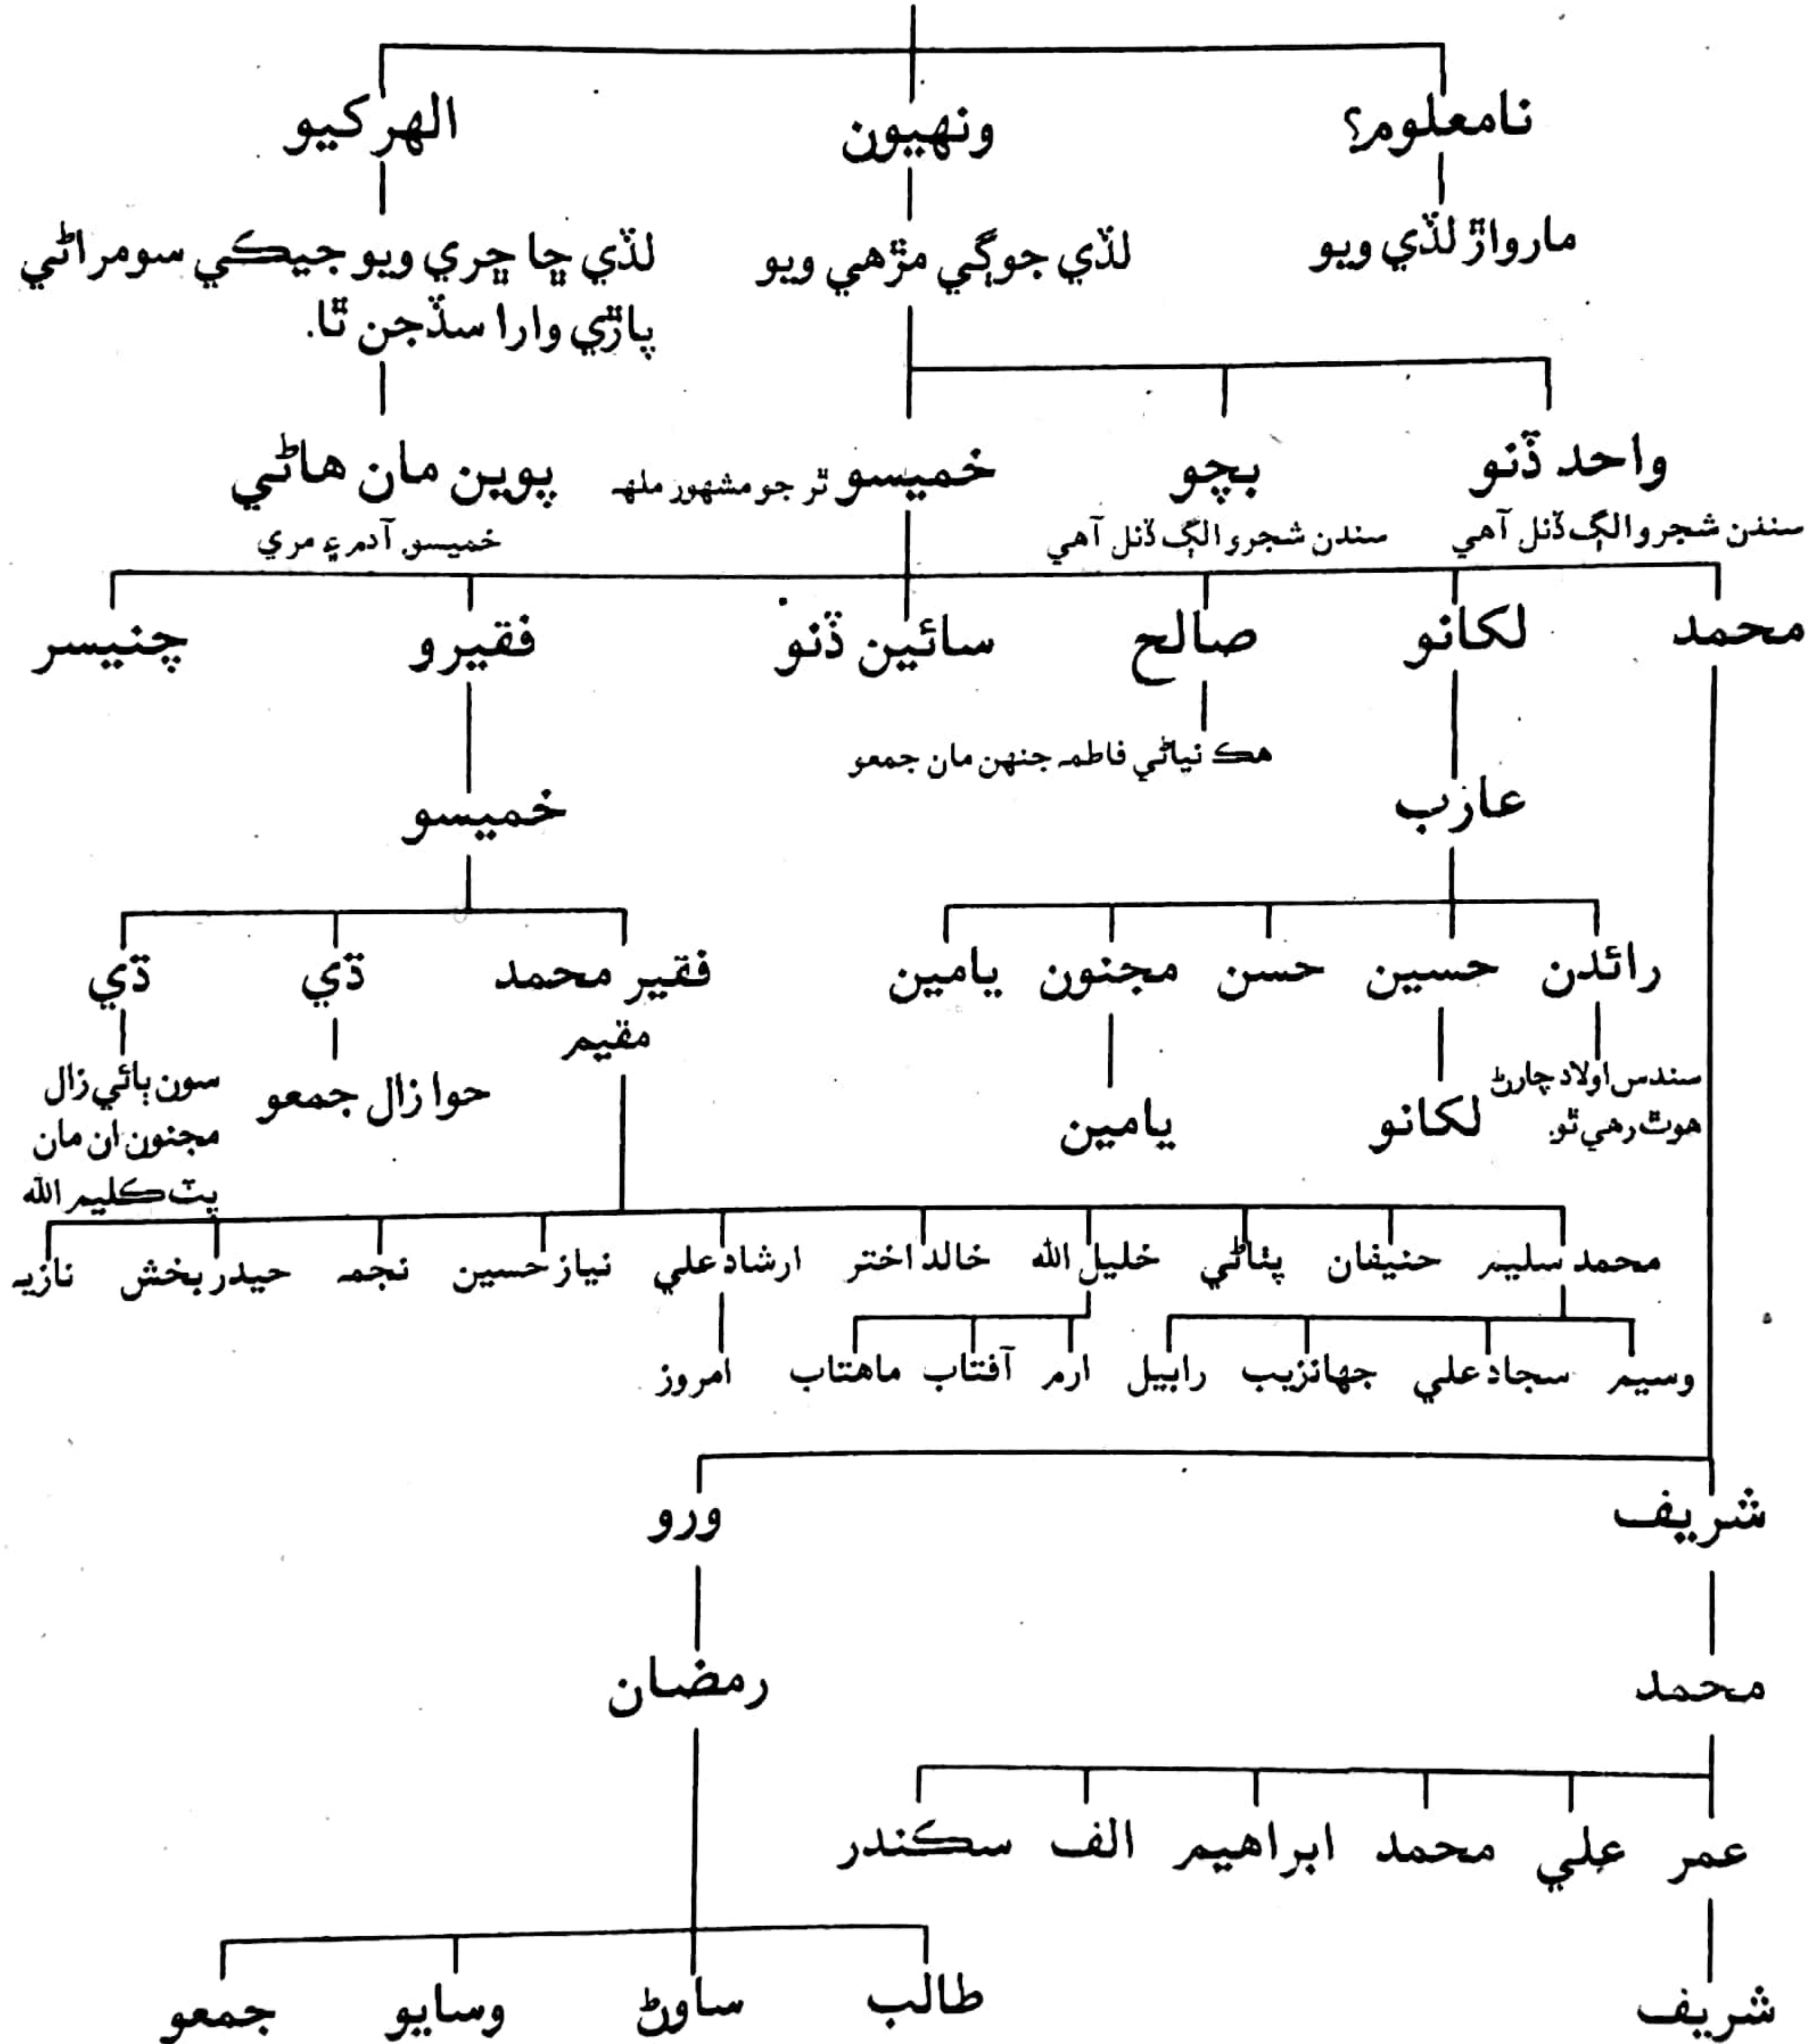 نامعلوم؟ ونهيون الهركيو
مارواڙ لڏي ويو لڏي جوڳي مڙهي ويو لڏي ڇا ڇري ويو جيڪي سومراڻي
پاڙي وارا سڏجن ٿا.
واحد ڏنو بچو خميسو ٿر جو مشهور ملهہ پوين مان هاڻي
سندن شجرو الڳ ڏنل آهي سندن شجرو الڳ ڏنل آهي خميسو آدم ۽ مري
محمد لکانو صالح سائين ڏنو فقيرو چنيسر
هڪ نياڻي فاطمہ جنهن مان جمعو
عازب خميسو
رائدن حسين حسن مجنون يامين فقير محمد ڌي ڌي
مقيم
سندس اولاد چارڻ لکانو يامين حوا زال جمعو سون ٻائي زال
هوٽ رهي ٿو. مجنون ان مان
پٽ ڪليم الله
محمد سليم حنيفان پٺاڻي خليل الله خالد اختر ارشاد علي نياز حسين نجمہ حيدر بخش نازيہ
وسيم سجاد علي جهانزيب رابيل ارم آفتاب ماهتاب امروز
شريف ورو
محمد رمضان
عمر علي محمد ابراهيم الف سڪندر
شريف طالب ساوڻ وسايو جمعو